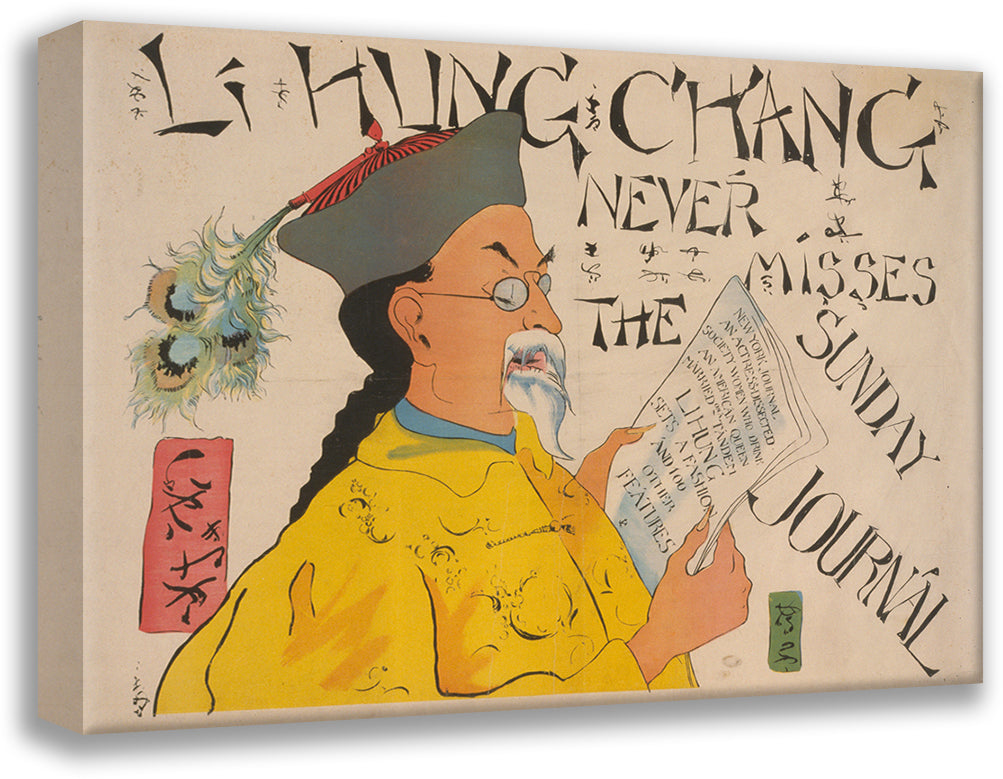 Li HUNG CHANG,
NEVER
MISSES
THE
SUNDAY
JOURNAL
NEW YORK JOURNAL
AN ACTRESS DISSECTED
SOCIETY WOMEN WHO DRINK
AN AMERICAN QUEEN
MARRIED ON A TANDEM
LI HUNG
SETS A FASHION
AND 100
OTHER
FEATURES
&